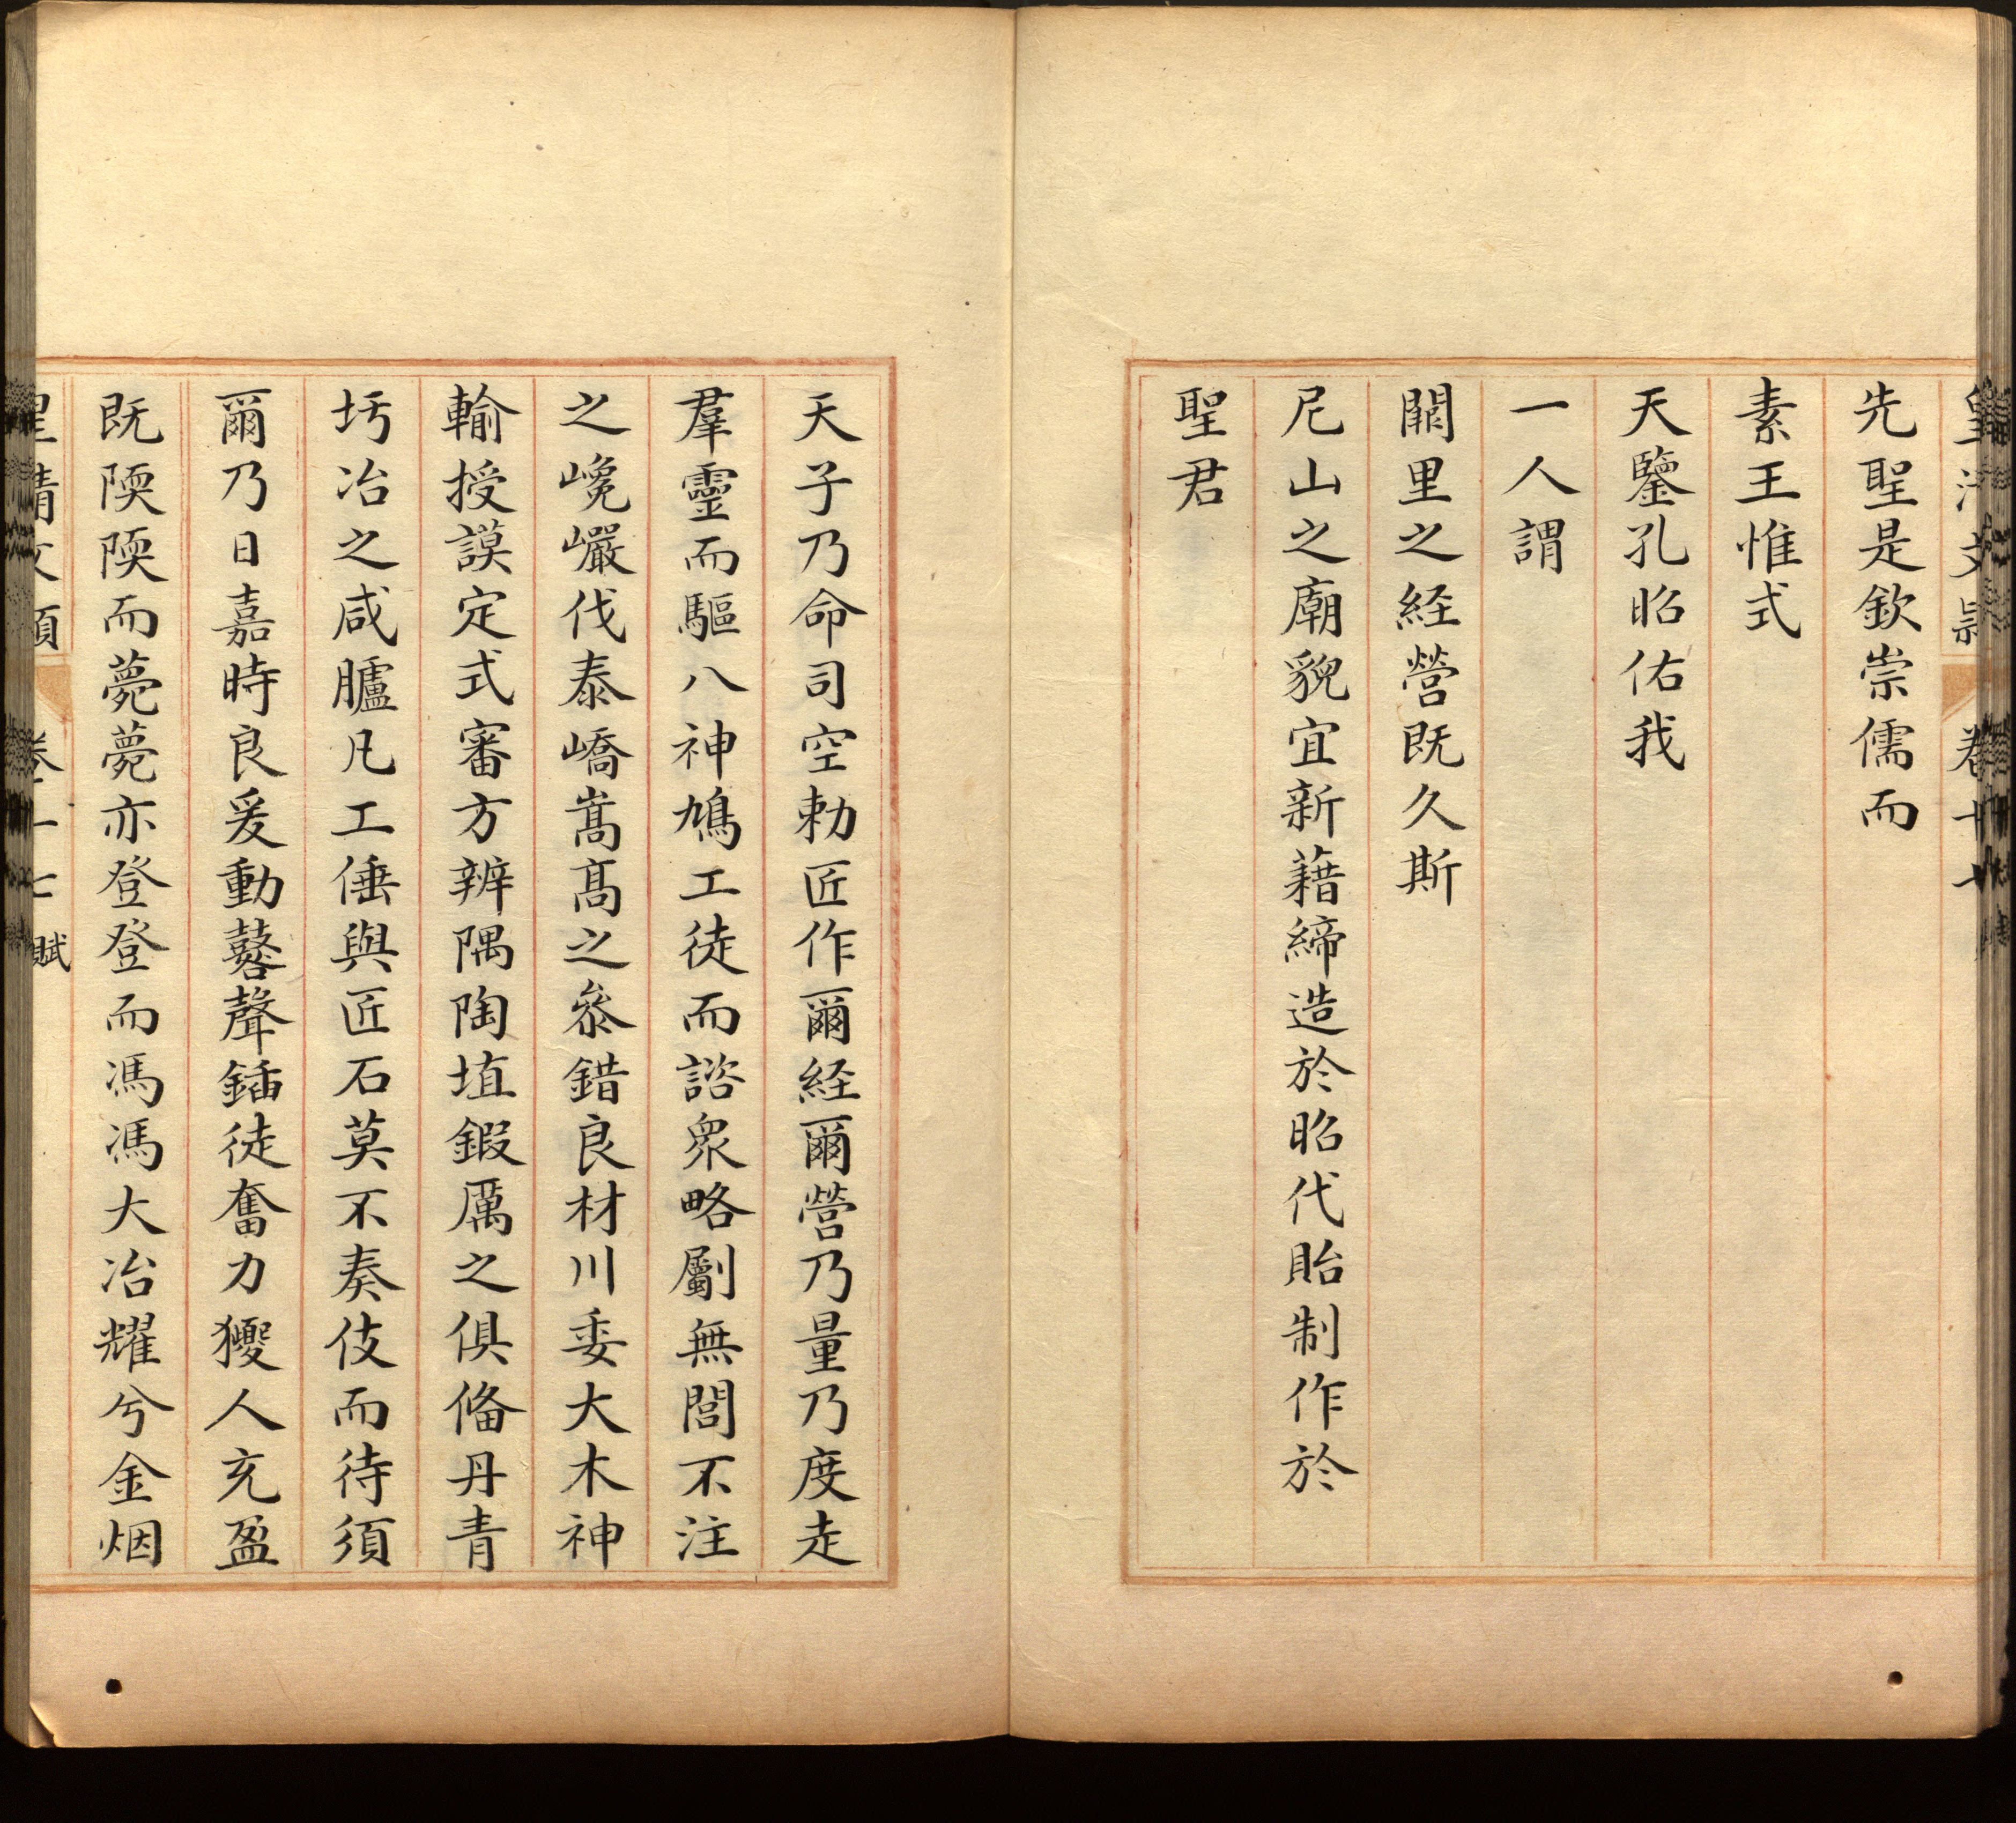 皇清文穎 卷十七 賦
先聖是欽崇儒而
素王惟式
天鑒孔昭佑我
一人謂
闕里之經營既久斯
尼山之廟貌宜新藉締造於昭代貽制作於
聖君
天子乃命司空勅匠作爾經爾營乃量乃度走
羣靈而驅八神鳩工徒而諮衆略劚無閭不注
之巉巖伐泰嶠嵩高之叅錯良材川委大木神
輸授謨定式審方辨隅陶埴鍜厲之俱備丹青
圬冶之咸臚凡工倕與匠石莫不奏伎而待須
爾乃日嘉時良爰動鼛聲鍤徒奮力獿人充盈
既陾陾而薨薨亦登登而馮馮大冶耀兮金烟
皇清文穎 卷十七 賦